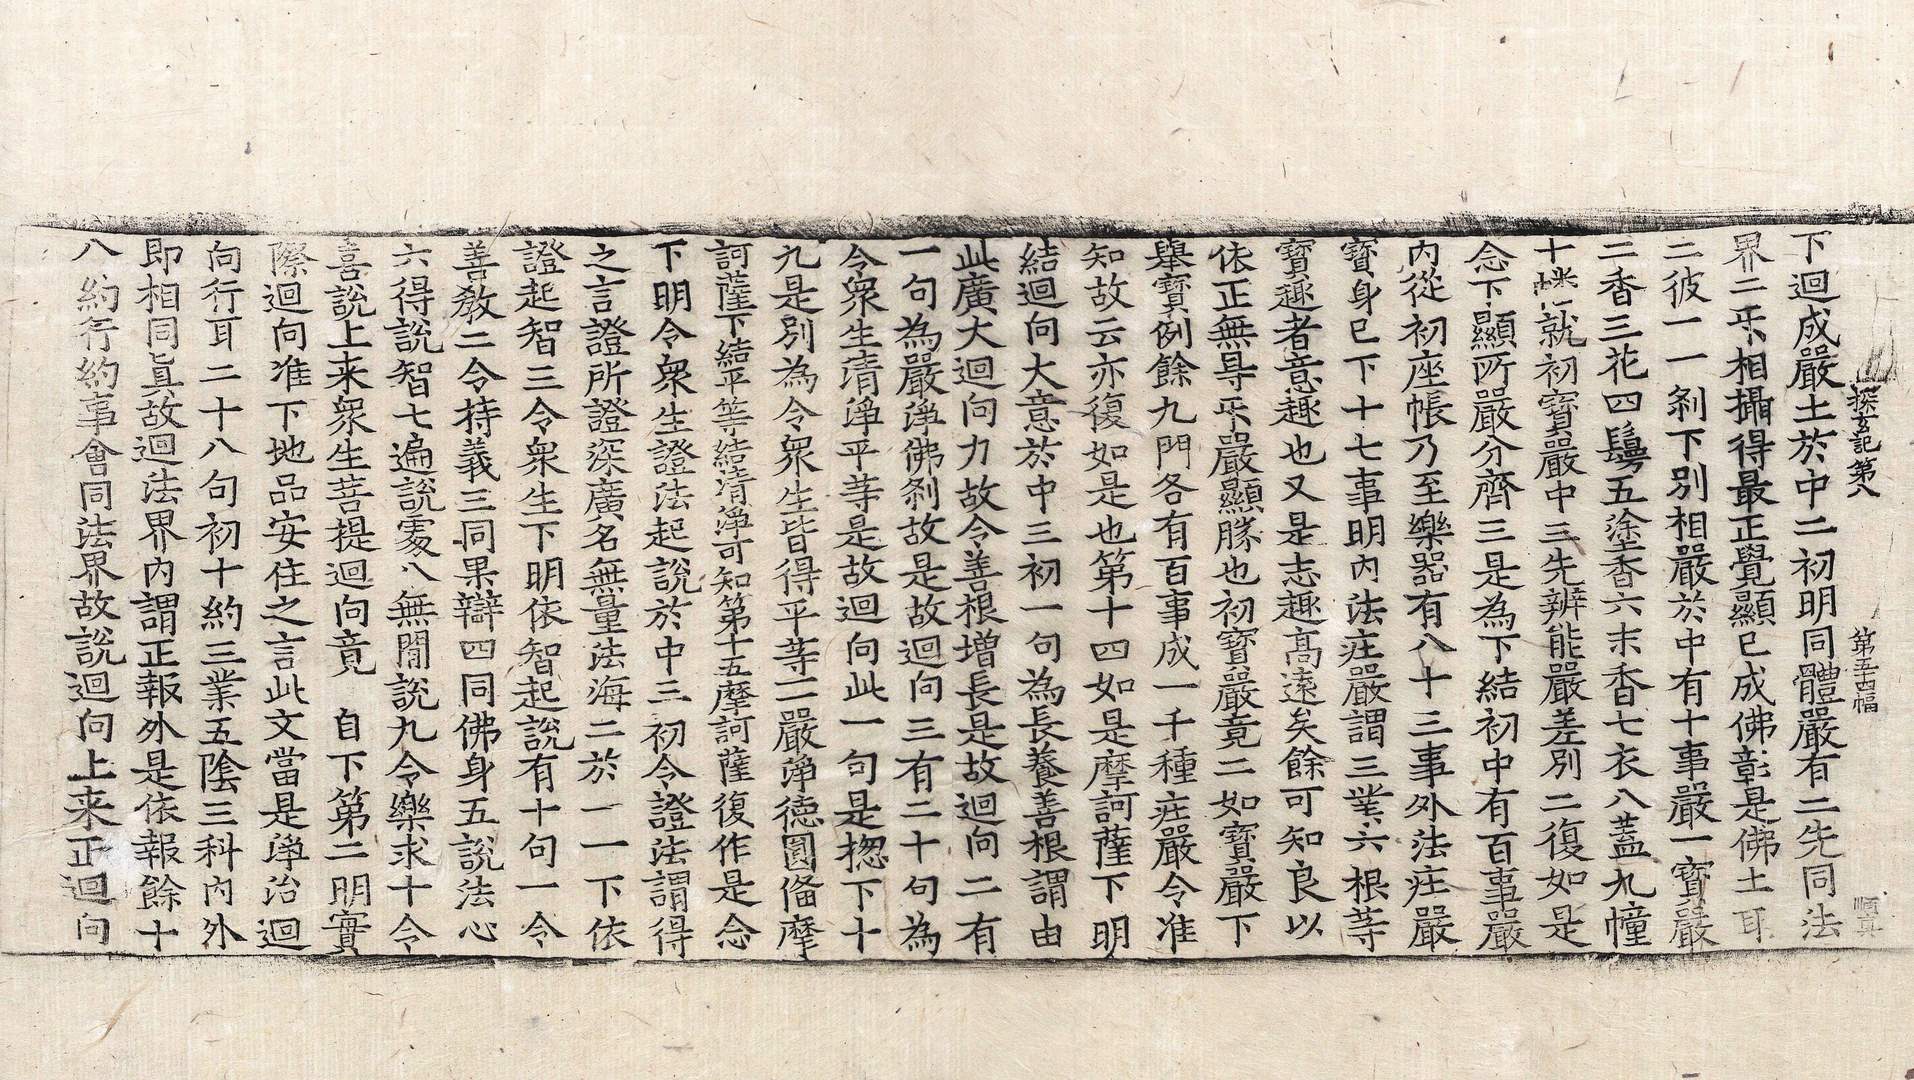 探玄記第八　第五十四幅　順真
下迴成嚴土於中二初明同體嚴有二先同法
界二乑相攝得最正覺顯已成佛彰是佛土耳
二彼一一剎下別相嚴於中有十事嚴一寶嚴
二香三花四鬘五塗香六末香七衣八蓋九幢
十幡就初寶嚴中三先辨能嚴差別二復如是
念下顯所嚴分齊三是為下結初中有百事嚴
內從初座帳乃至樂器有八十三事外法庄嚴
寶身已下十七事明內法庄嚴謂三業六根等
寶趣者意趣也又是志趣高遠矣餘可知良以
依正無㝵乑嚴顯勝也初寶嚴竟二如寶嚴下
舉寶例餘九門各有百事成一千種庄嚴令准
知故云亦復如是也第十四如是摩訶薩下明
結迴向大意於中三初一句為長養善根謂由
此廣大迴向力故令善根增長是故迴向二有
一句為嚴淨佛剎故是故迴向三有二十句為
令衆生清淨平等是故迴向此一句是揔下十
九是別為令衆生皆得平等二嚴淨德圓俻摩
訶薩下結平等結清淨可知第十五摩訶薩復作是念
下明令衆生證法起說於中三初令證法謂得
之言證所證深廣名無量法海二於一一下依
證起智三令衆生下明依智起說有十句一令
善教二令持義三同果辯四同佛身五說法心
六得說智七遍說處八無間說九令樂求十令
喜說上来衆生菩提迴向竟　自下第二明實
際迴向准下地品安住之言此文當是淨治迴
向行耳二十八句初十約三業五陰三科內外
即相同真故迴法界內謂正報外是依報餘十
八約行約事會同法界故說迴向上来正迴向